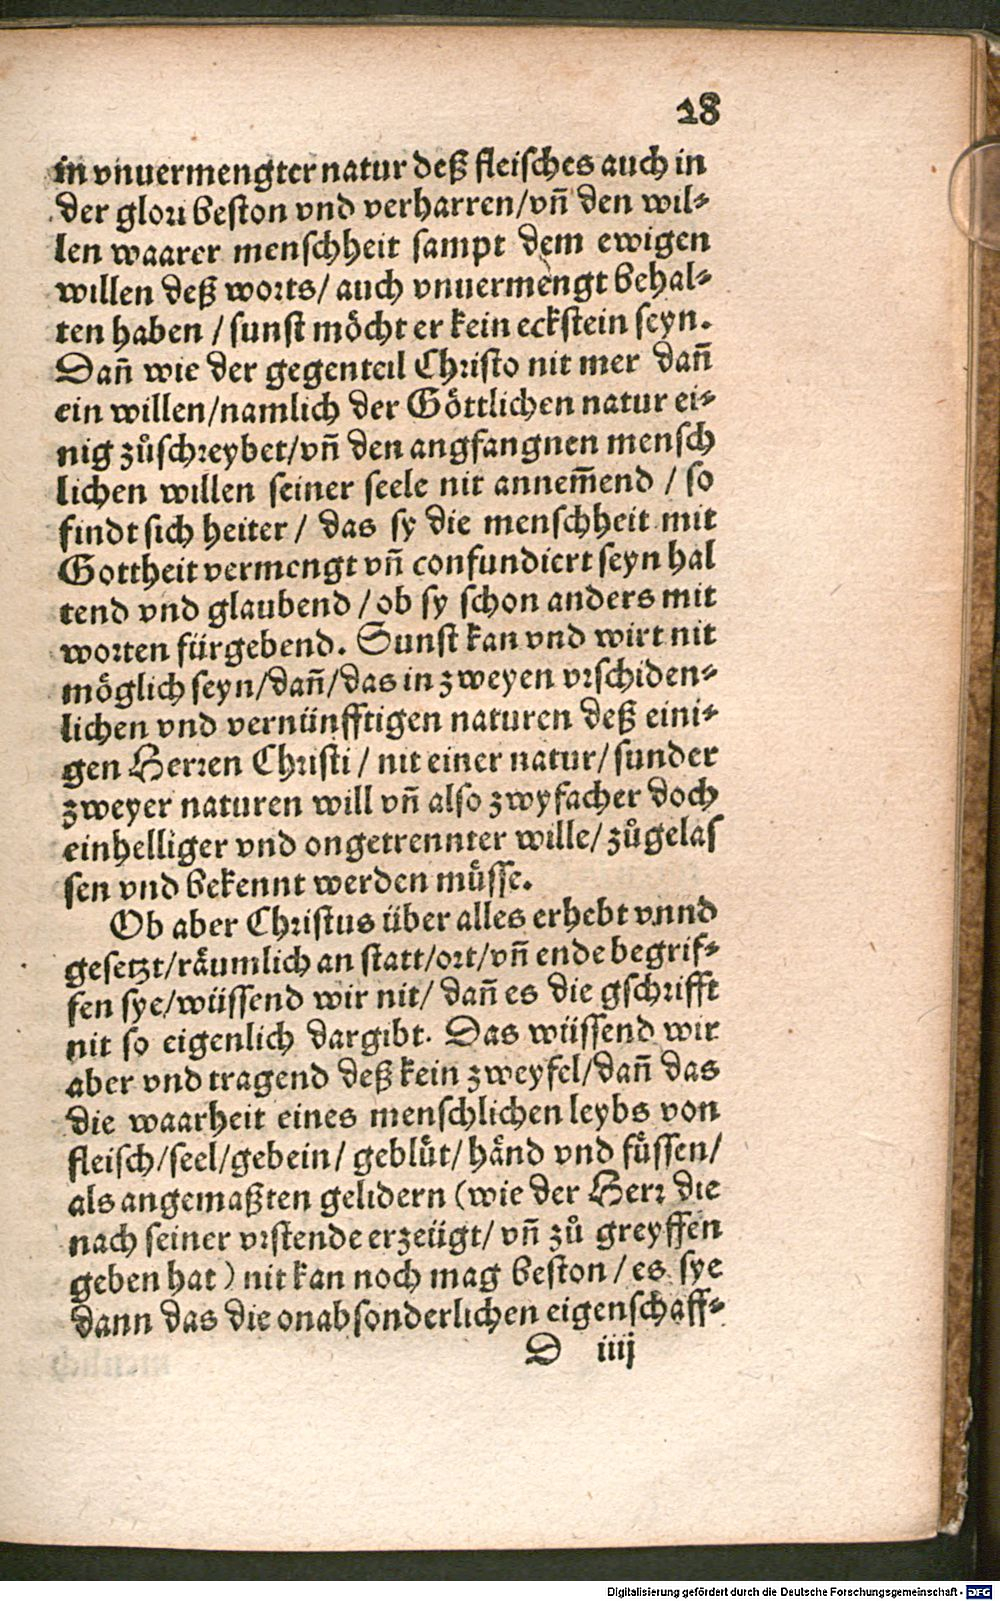 28
in vnuermengter natur deß fleisches auch in
der glori beston vnd verharren/vñ den wil⸗
len waarer menschheit sampt dem ewigen
willen deß worts/ auch vnuermengt behal⸗
ten haben / sunst möcht er kein eckstein seyn.
Dañ wie der gegenteil Christo nit mer dañ
ein willen/namlich der Göttlichen natur ei⸗
nig zůschreybet/vñ den angfangnen mensch
lichen willen seiner seele nit annem̃end / so
findt sich heiter / das sy die menschheit mit
Gottheit vermengt vñ confundiert seyn hal
tend vnd glaubend / ob sy schon anders mit
worten fürgebend. Sunst kan vnd wirt nit
möglich seyn/dañ/das in zweyen vrschiden⸗
lichen vnd vernünfftigen naturen deß eini⸗
gen Herren Christi / nit einer natur/ sunder
zweyer naturen will vñ also zwyfacher doch
einhelliger vnd ongetrennter wille/ zůgelas
sen vnd bekennt werden müsse.
Ob aber Christus über alles erhebt vnnd
gesetzt/räumlich an statt/ort/vñ ende begrif⸗
fen sye/wüssend wir nit/ dañ es die gschrifft
nit so eigenlich dargibt. Das wüssend wir
aber vnd tragend deß kein zweyfel/dañ das
die waarheit eines menschlichen leybs von
fleisch/seel/gebein/ geblüt/ händ vnd füssen/
als angemaßten gelidern (wie der Herr die
nach seiner vrstende erzeügt/ vñ zů greyffen
geben hat) nit kan noch mag beston / es sye
dann das die onabsonderlichen eigenschaff⸗
D iiij
Digitalisierung gefördert durch die Deutsche Forschungsgemeinschaft - DFG